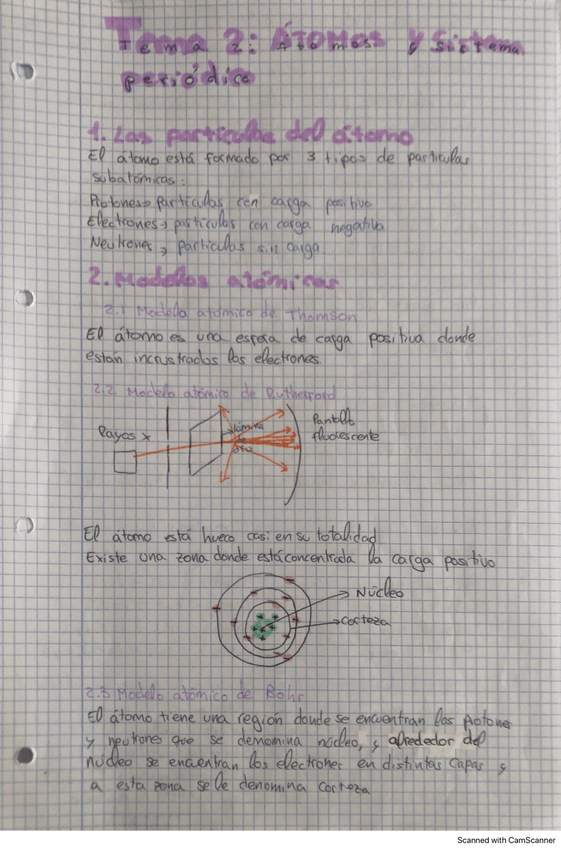 Tema 2: Átomos y Sistema
periódico
1. Las partículas del átomo
El átomo está formado por 3 tipos de partículas
subatómicas:
Protones → partículas con carga positiva
Electrones → partículas con carga negativa
Neutrones → partículas sin carga
2. Modelos atómicos
2.1 Modelo atómico de Thomson
El átomo es una esfera de carga positiva donde
están incrustados los electrones.
2.2 Modelo atómico de Rutherford
Rayos X
Lámina
de
oro
Pantalla
fluorescente
El átomo está hueco casi en su totalidad
Existe una zona donde está concentrada la carga positiva
Núcleo
Corteza
2.3 Modelo atómico de Bohr
El átomo tiene una región donde se encuentran los protones
y neutrones que se denomina núcleo, y alrededor del
núcleo se encuentran los electrones en distintas capas y
a esta zona se le denomina corteza
Scanned with CamScanner